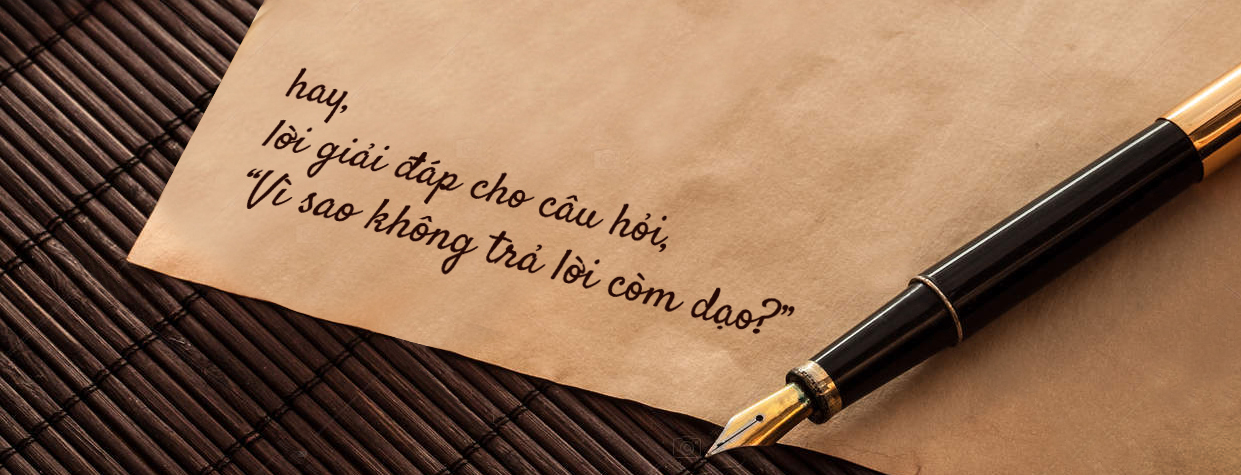 hay,
lời giải đáp cho câu hỏi,
“Vì sao không trả lời còm dạo?”